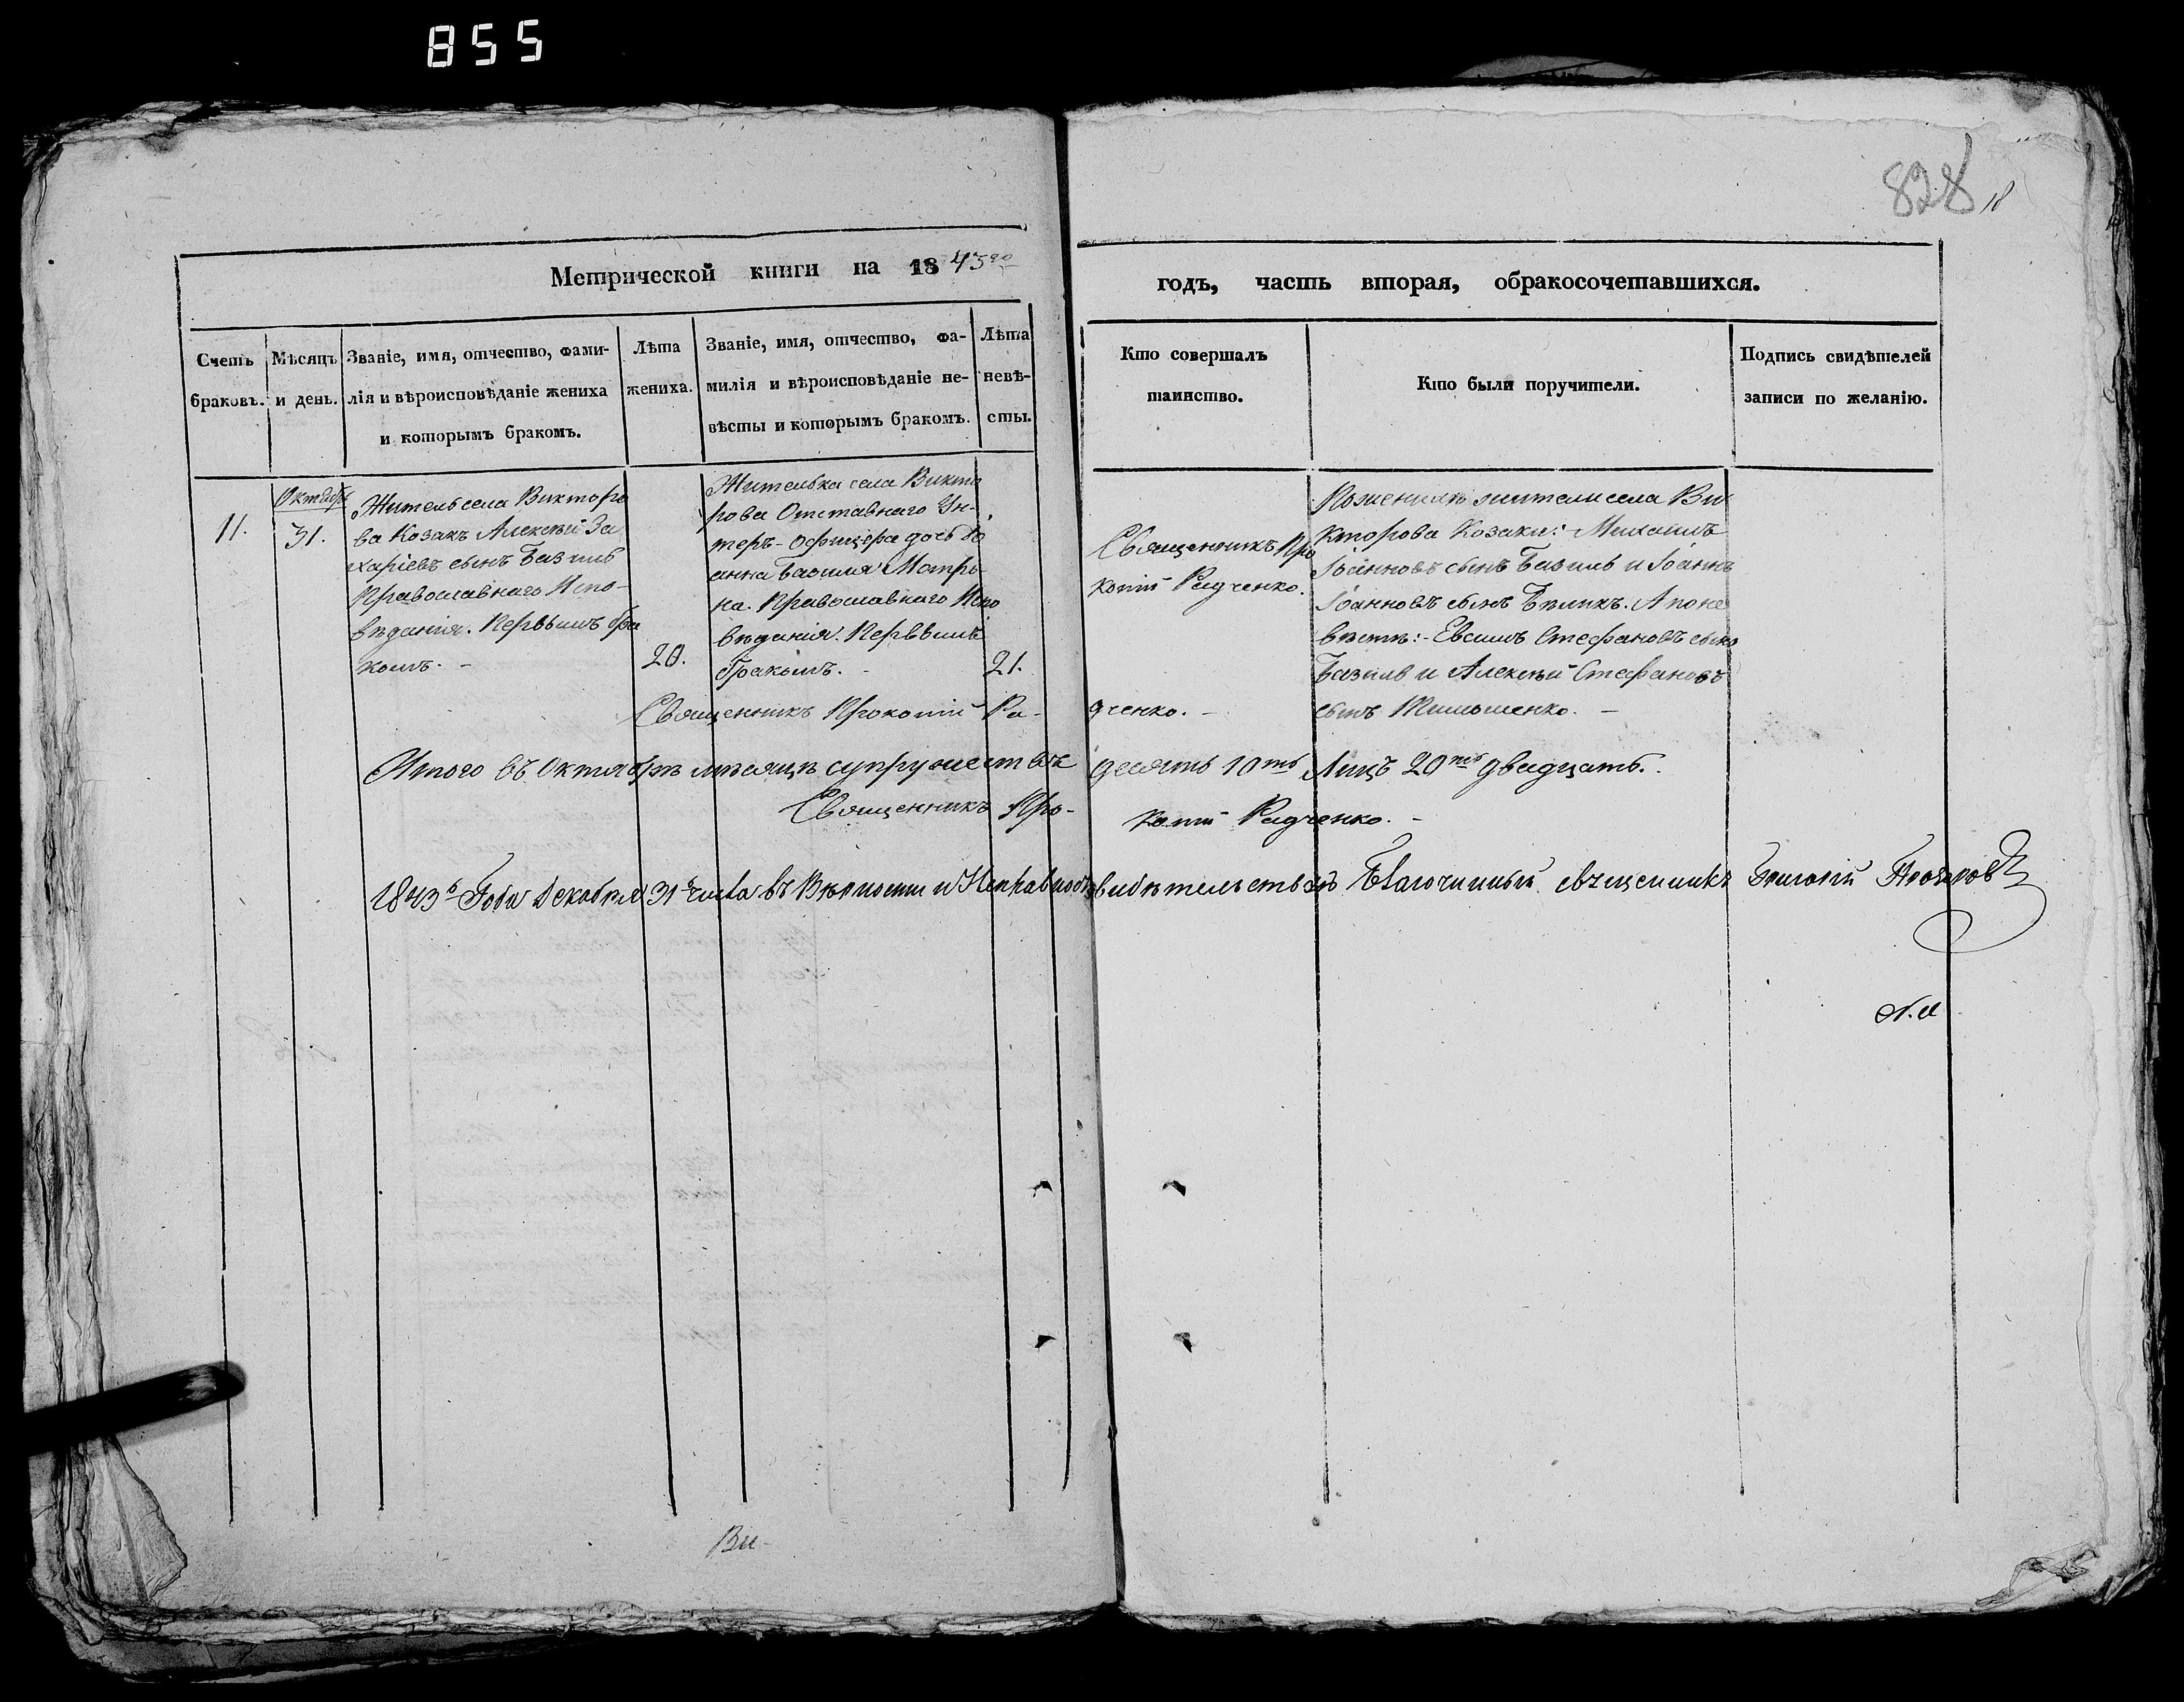 855
828 18
Метрической книги на 1843го
годъ, часть вторая, обракосочетавшихся.
Счетъ
браковъ.
Мѣсяцъ
и день.
Званіе, имя, отчество, фами-
лія и вѣроисповѣданіе жениха
и которымъ бракомъ.
Лѣта
жениха.
Званіе, имя, отчество, фа-
милія и вѣроисповѣданіе не-
вѣсты и которымъ бракомъ.
Лѣта
невѣ-
сты.
Кто совершалъ
таинство.
Кто были поручители.
Подпись свидѣтелей
записи по желанію.
11.
Октябрь
31.
Житель села Викторо
ва Козакъ Алексѣй За
харіевъ сынъ Базиль
Православнаго Испо-
вѣданія. Первымъ бра
комъ. -
20.
Жителька села Викто
рова Отставнаго Ун-
теръ-офицера дочь Іо
анна Базиля Матро-
на. Православнаго Испо
вѣданія. Первымъ
бракомъ. -
21.
Священникъ Про
копій Радченко.
По женихѣ жители села Ви
кторова Козаки: Михаилъ
Іоанновъ сынъ Базиль и Іоаннъ
Іоанновъ сынъ Бѣликъ. А по не
вѣстѣ:- Евсимъ Стефановъ сынъ
Базиль и Алексѣй Стефановъ
сынъ Тимошенко. -
Священникъ Прокопій Ра-
дченко. -
Итого въ Октябрѣ мѣсяцѣ супружествъ десять 10ть Лицъ 20ть двадцать.
Священникъ Про-
копій Радченко. -
1843го Года Декабря 31 числа въ Вѣрности и Исправности свидѣтельствовалъ Благочинный священникъ Григорій
Ви-